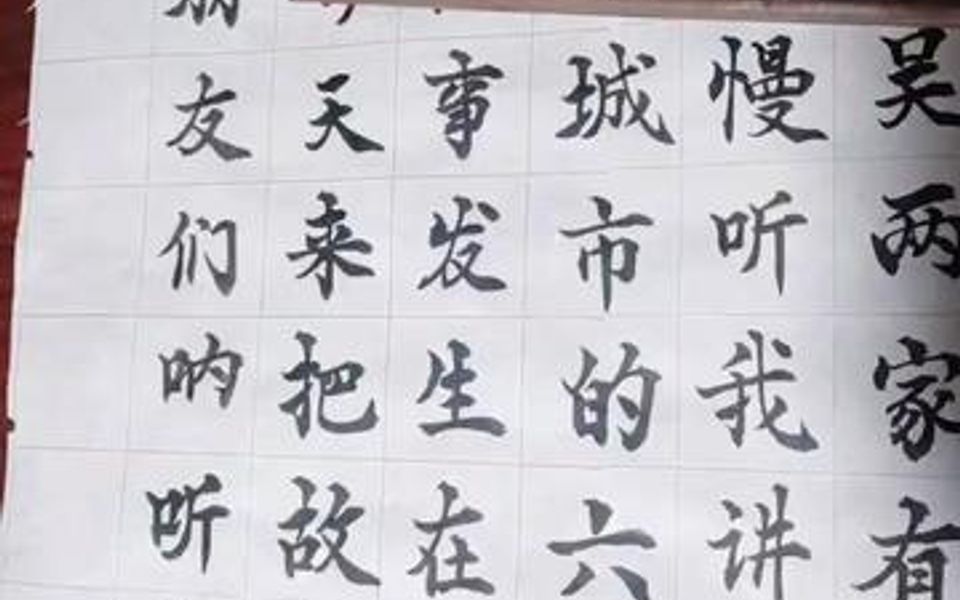 友们呐听
天来把故
事发生在
城市的六
慢听我讲
吴两家有